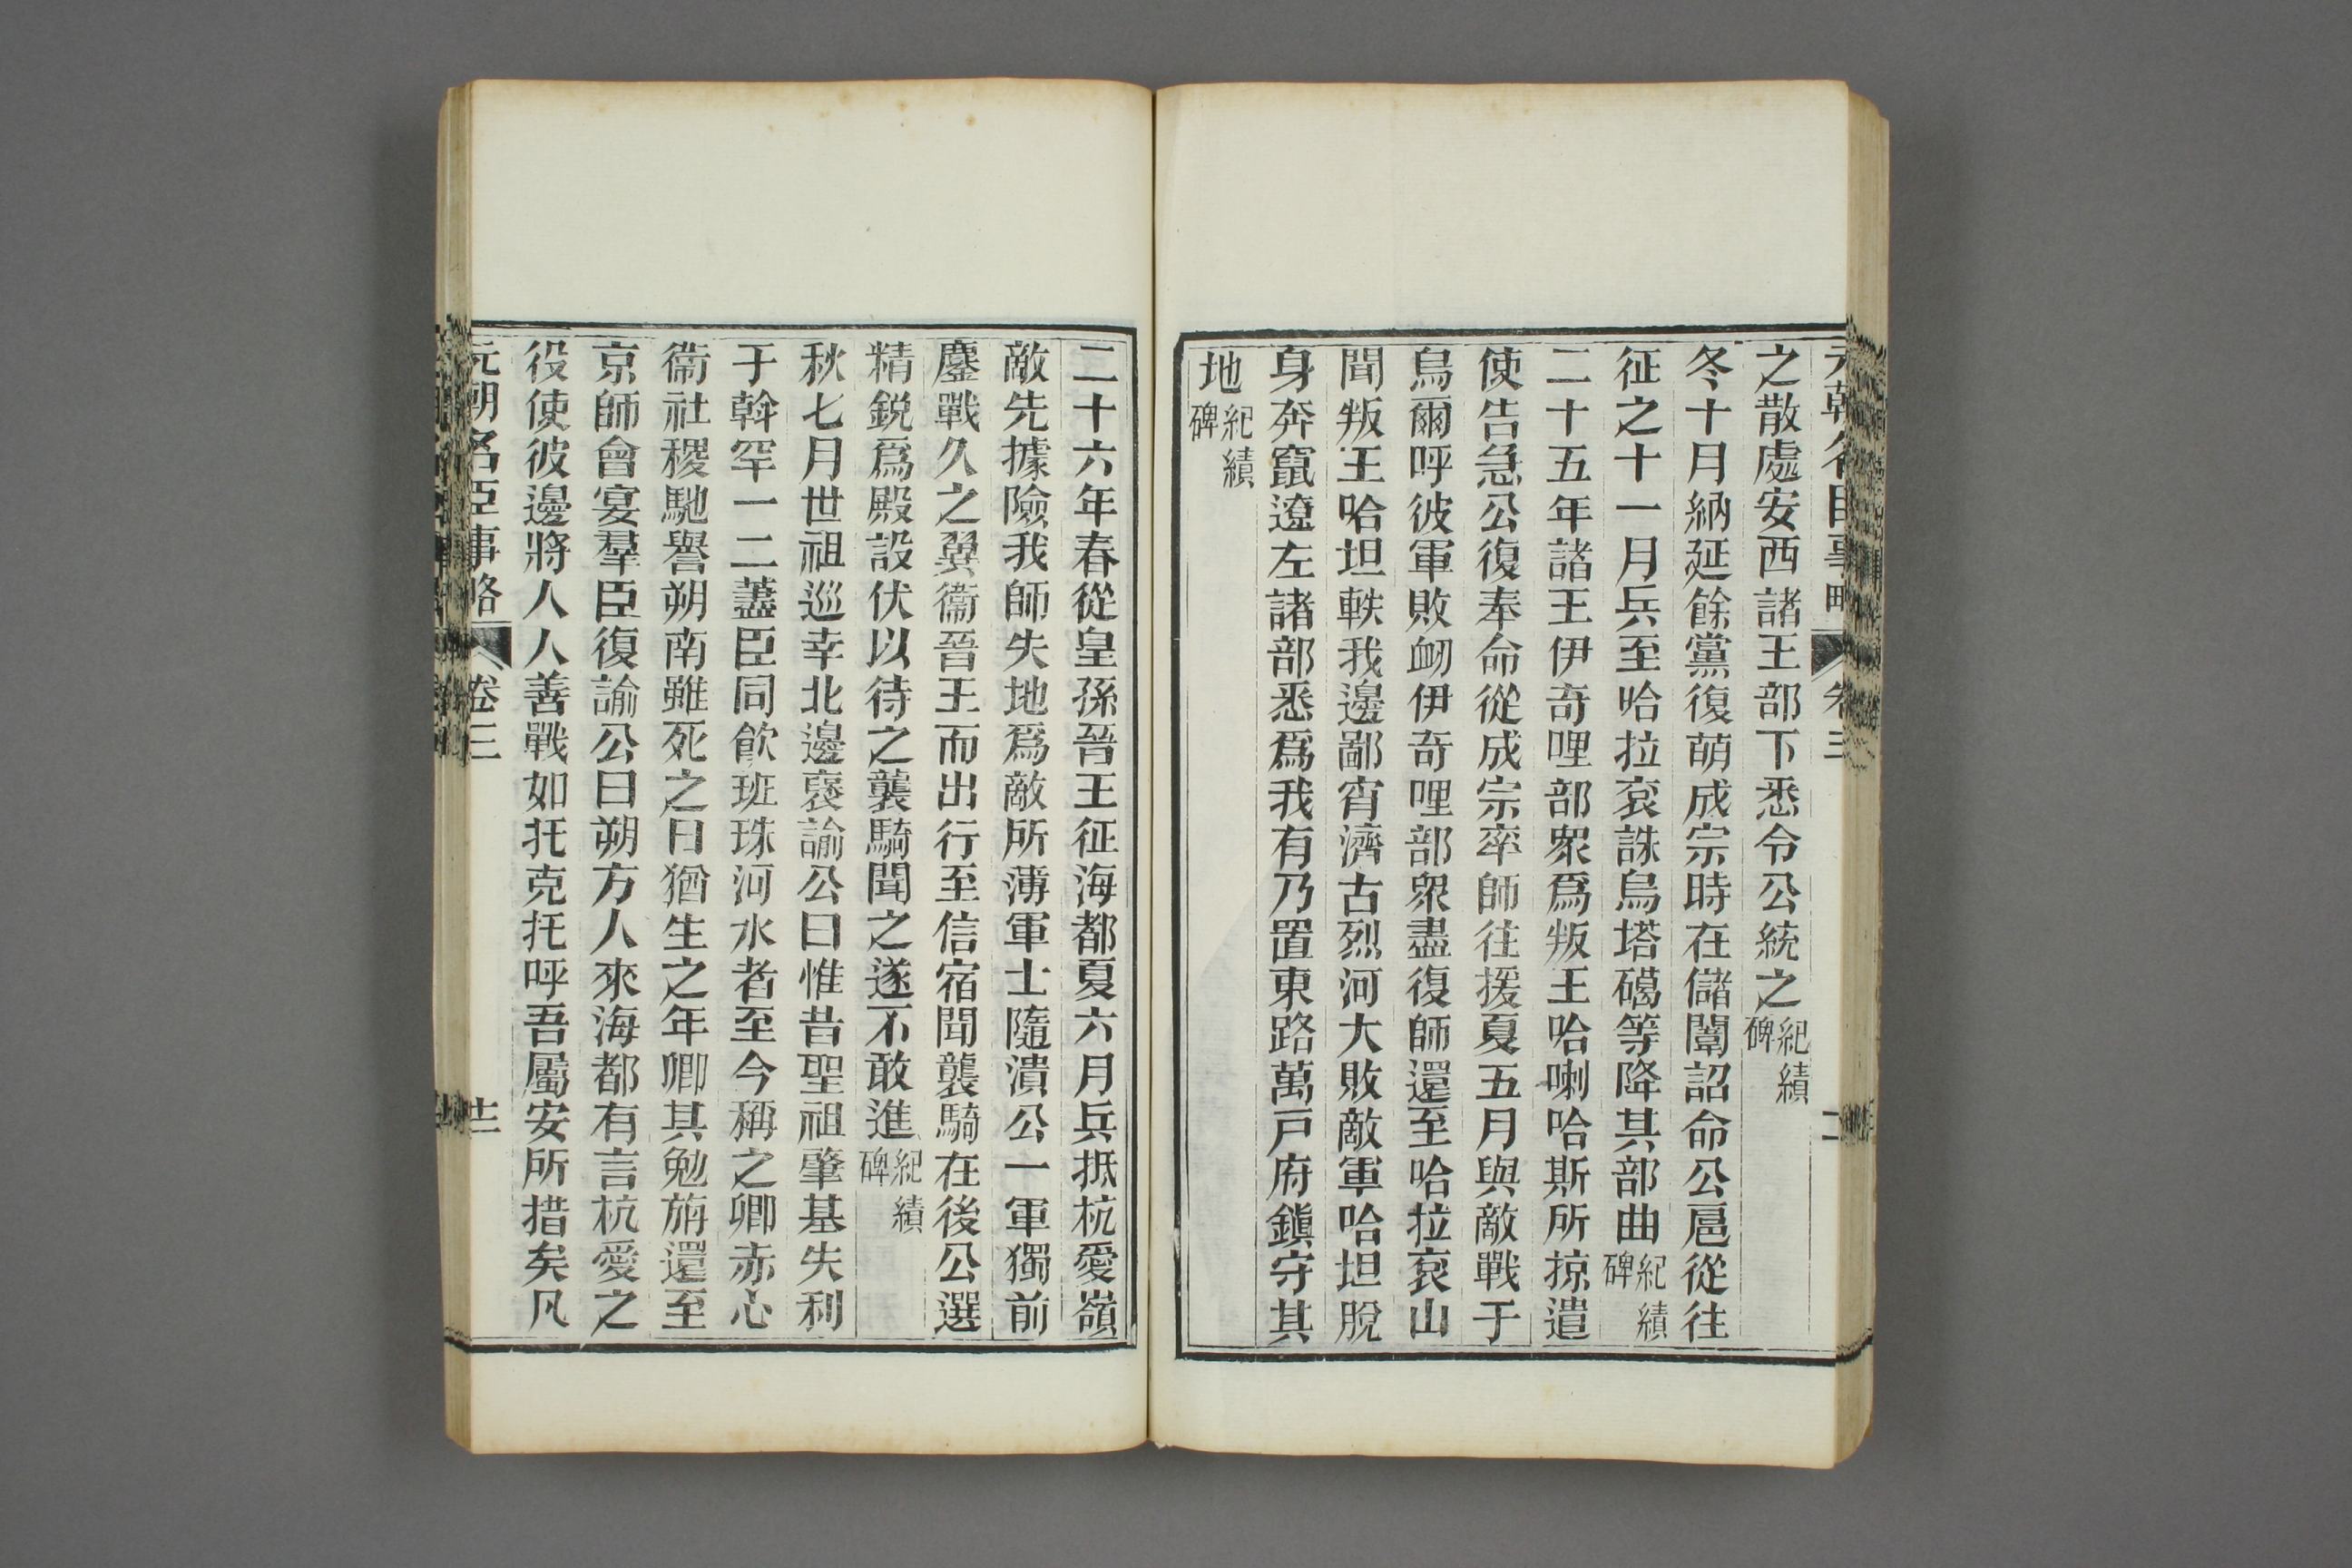 元朝名臣事略 卷三
之散處安西諸王部下悉令公統之紀績碑
冬十月納延餘黨復萌成宗時在儲闈詔命公扈從往
征之十一月兵至哈拉袞誅烏塔噶等降其部曲紀績碑
二十五年諸王伊奇哩部衆爲叛王哈喇哈斯所掠遣
使告急公復奉命從成宗率師往援夏五月與敵戰于
烏爾呼彼軍敗衂伊奇哩部衆盡復師還至哈拉袞山
聞叛王哈坦軼我邊鄙宵濟古烈河大敗敵軍哈坦脫
身奔竄遼左諸部悉爲我有乃置東路萬戸府鎭守其
地紀績碑
二十六年春從皇孫晉王征海都夏六月兵抵杭愛嶺
敵先據險我師失地爲敵所薄軍士隨潰公一軍獨前
鏖戰久之翼衞晉王而出行至信宿聞襲騎在後公選
精鋭爲殿設伏以待之襲騎聞之遂不敢進紀績碑
秋七月世祖巡幸北邊裦諭公曰惟昔聖祖肇基失利
于斡罕一二藎臣同飮班珠河水者至今稱之卿赤心
衞社稷馳譽朔南雖死之日猶生之年卿其勉旃還至
京師會宴羣臣復諭公曰朔方人來海都有言杭愛之
役使彼邊將人人善戰如托克托呼吾屬安所措矣凡
元朝名臣事略 卷三 十二